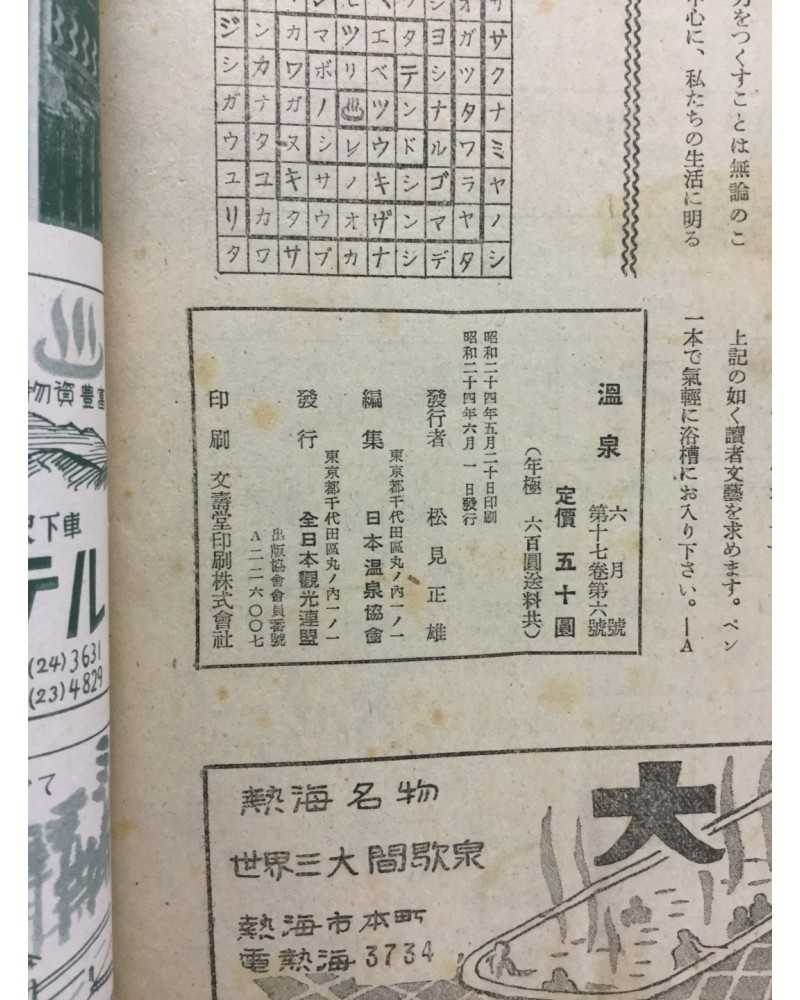 力をつくすことは無論のこ
中心に、私たちの生活に明る
ジンカマツエタヨガサ
シカワボリベテシツク
ガナガノ♨ツンナタナ
ウタヌシレウドルワミ
ユユキサノキシゴラヤ
リカタウオザンマヤノ
タワサブカナシデタシ
上記の如く讀者文藝を求めます。ペン
一本で氣輕に浴槽にお入り下さい。―A
溫泉 六月號
第十七卷第六號
定價 五十圓
(年極 六百圓送料共)
昭和二十四年五月二十日印刷
昭和二十四年六月一日發行
發行者 松見正雄
東京都千代田區丸ノ內一ノ一
編集 日本溫泉協會
東京都千代田區丸ノ內一ノ一
發行 全日本觀光連盟
出版協會會員番號
A二一六〇〇七
印刷 文壽堂印刷株式會社
物資豊富
下車
テル
(24)3631
(23)4829
て
大
熱海名物
世界三大間歇泉
熱海市本町
電熱海3734